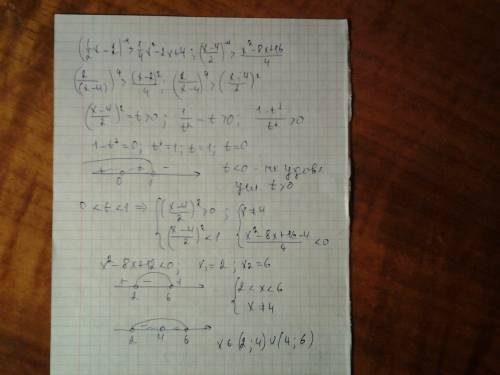 (1/2 x - 2)^-4 > 1/4 x² - 2x + 4 ; ((x-4)/2)^-4 > (x² - 8x + 16)/4
(2/(x-4))^4 > (x-2)²/4 ; (2/(x-4))^4 > ((x-4)/2)²
((x-4)/2)² = t > 0 ; 1/t² - t > 0 ; (1-t³)/t² > 0
1 - t³ = 0 ; t³ = 1 ; t = 1 ; t = 0
+ + -
0 1
t < 0 - не удовл.
усл. t > 0
0 < t < 1 ⇒ { ((x-4)/2)² > 0 ; { x ≠ 4
((x-4)/2)² < 1 (x² - 8x + 16 - 4)/4 < 0
x² - 8x + 12 < 0 ; x₁ = 2 ; x₂ = 6
+ - +
2 6
{ 2 < x < 6
x ≠ 4
2 4 6
x ∈ (2; 4) ∪ (4; 6)